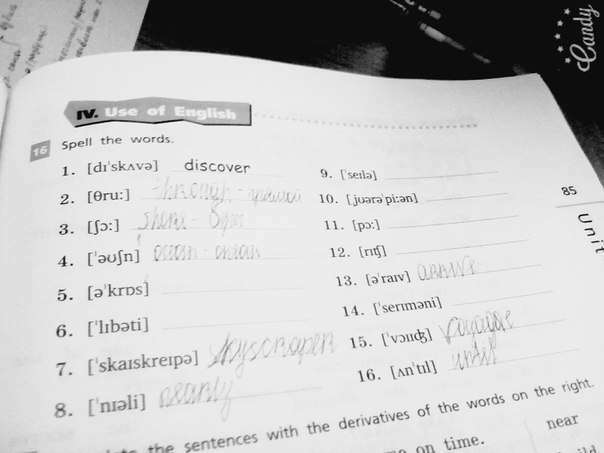 Candy
IV. Use of English
16 Spell the words.
1. [dɪˈskʌvə] discover
2. [θruː]
3. [ʃɔː] shore - берег
4. [ˈəʊʃn] ocean - океан
5. [əˈkrɒs]
6. [ˈlɪbəti]
7. [ˈskaɪskreɪpə] skyscraper
8. [ˈnɪəli] nearly
9. [ˈseɪlə]
10. [ˌjʊərəˈpiːən]
11. [pɔː]
12. [rɪʧ]
13. [əˈraɪv] arrive
14. [ˈserɪməni]
15. [ˈvɔɪɪʤ] voyage
16. [ʌnˈtɪl] until
85
Unit
the sentences with the derivatives of the words on the right.
on time.
near